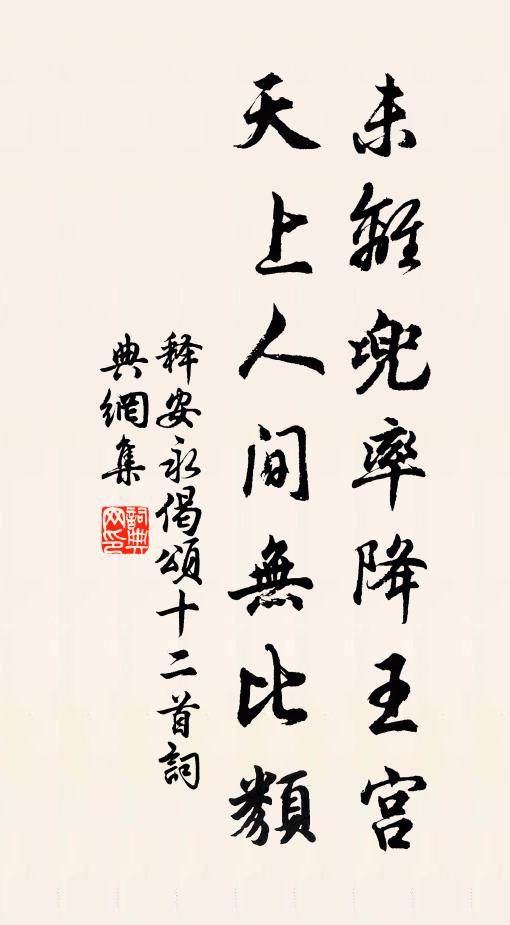 未離兜率降王宮
天上人间無比類
释安永偈頌十二首詞
典網集
詞典
网印